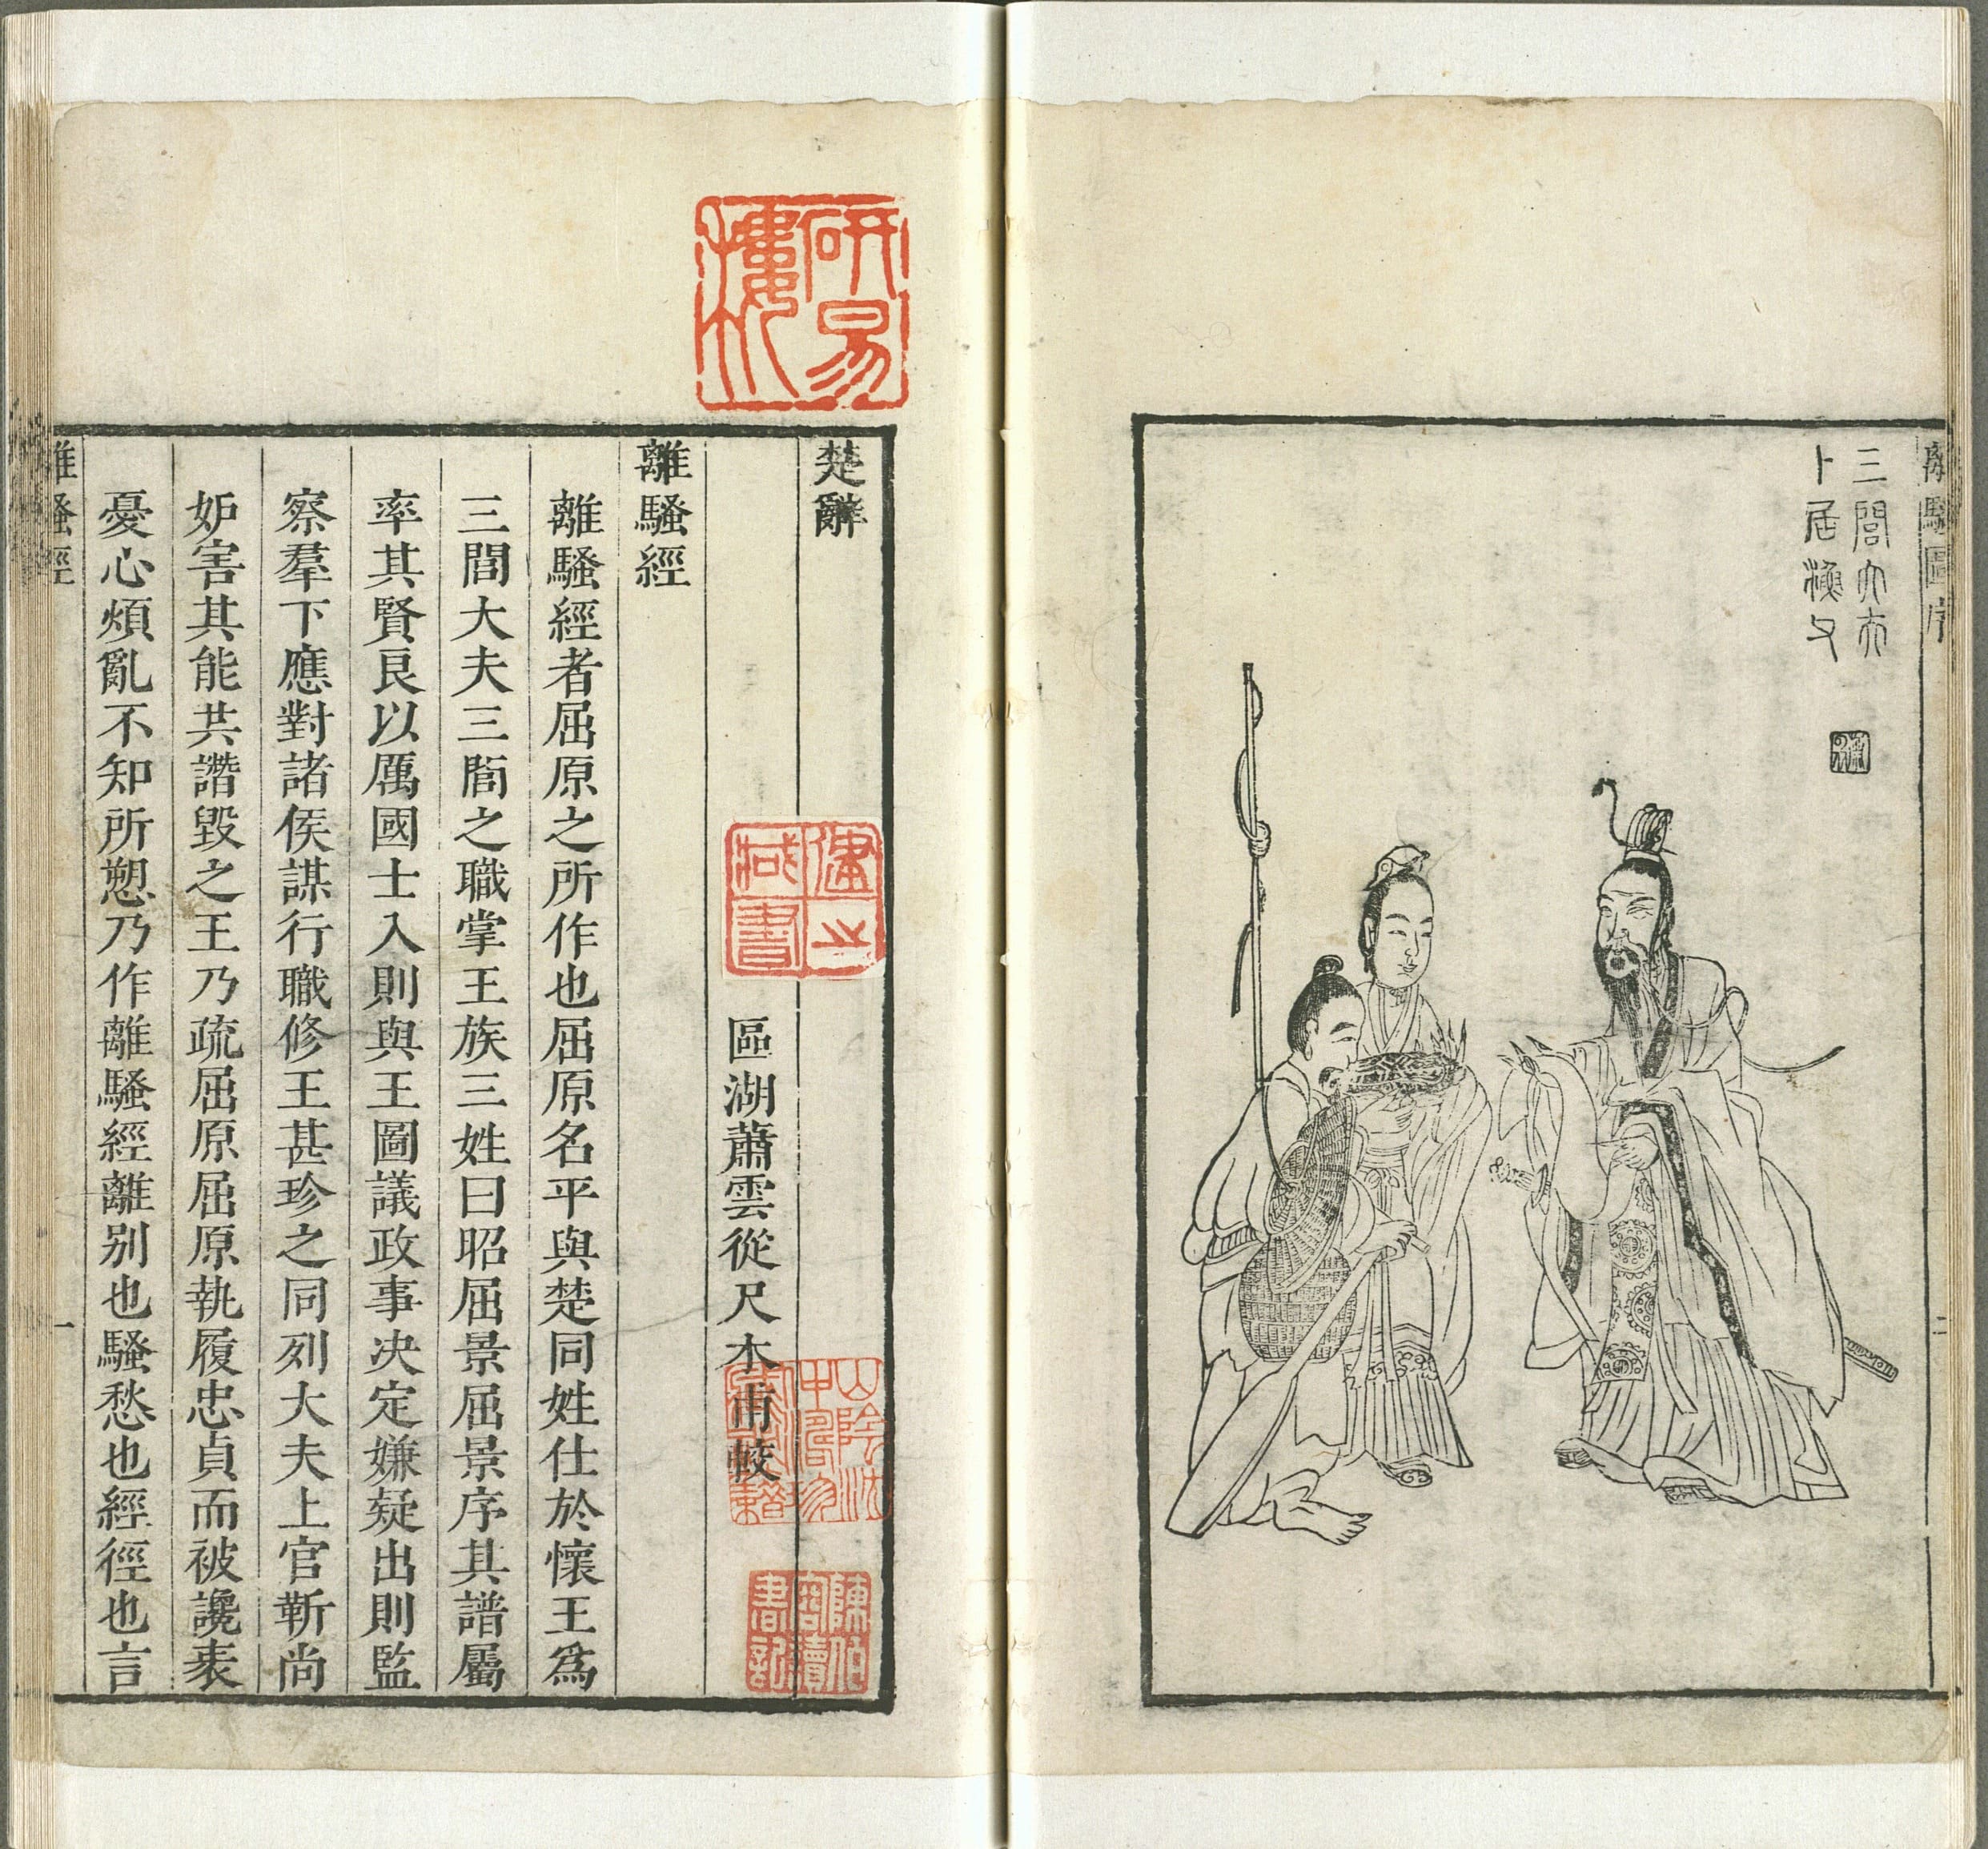 三閭大夫
卜居漁父
離騷圖序
二
楚辭
區湖蕭雲從尺木甫較
離騷經
離騷經者屈原之所作也屈原名平與楚同姓仕於懷王爲
三閭大夫三閭之職掌王族三姓曰昭屈景屈景序其譜屬
率其賢良以厲國士入則與王圖議政事决定嫌疑出則監
察羣下應對諸侯謀行職修王甚珍之同列大夫上官靳尚
妒害其能共譖毀之王乃疏屈原屈原執履忠貞而被讒衺
憂心煩亂不知所愬乃作離騷經離别也騷愁也經徑也言
離騷經
一
研易樓
藏書